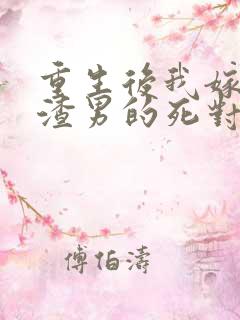 重生後我嫁
渣男的死對
傅伯濤